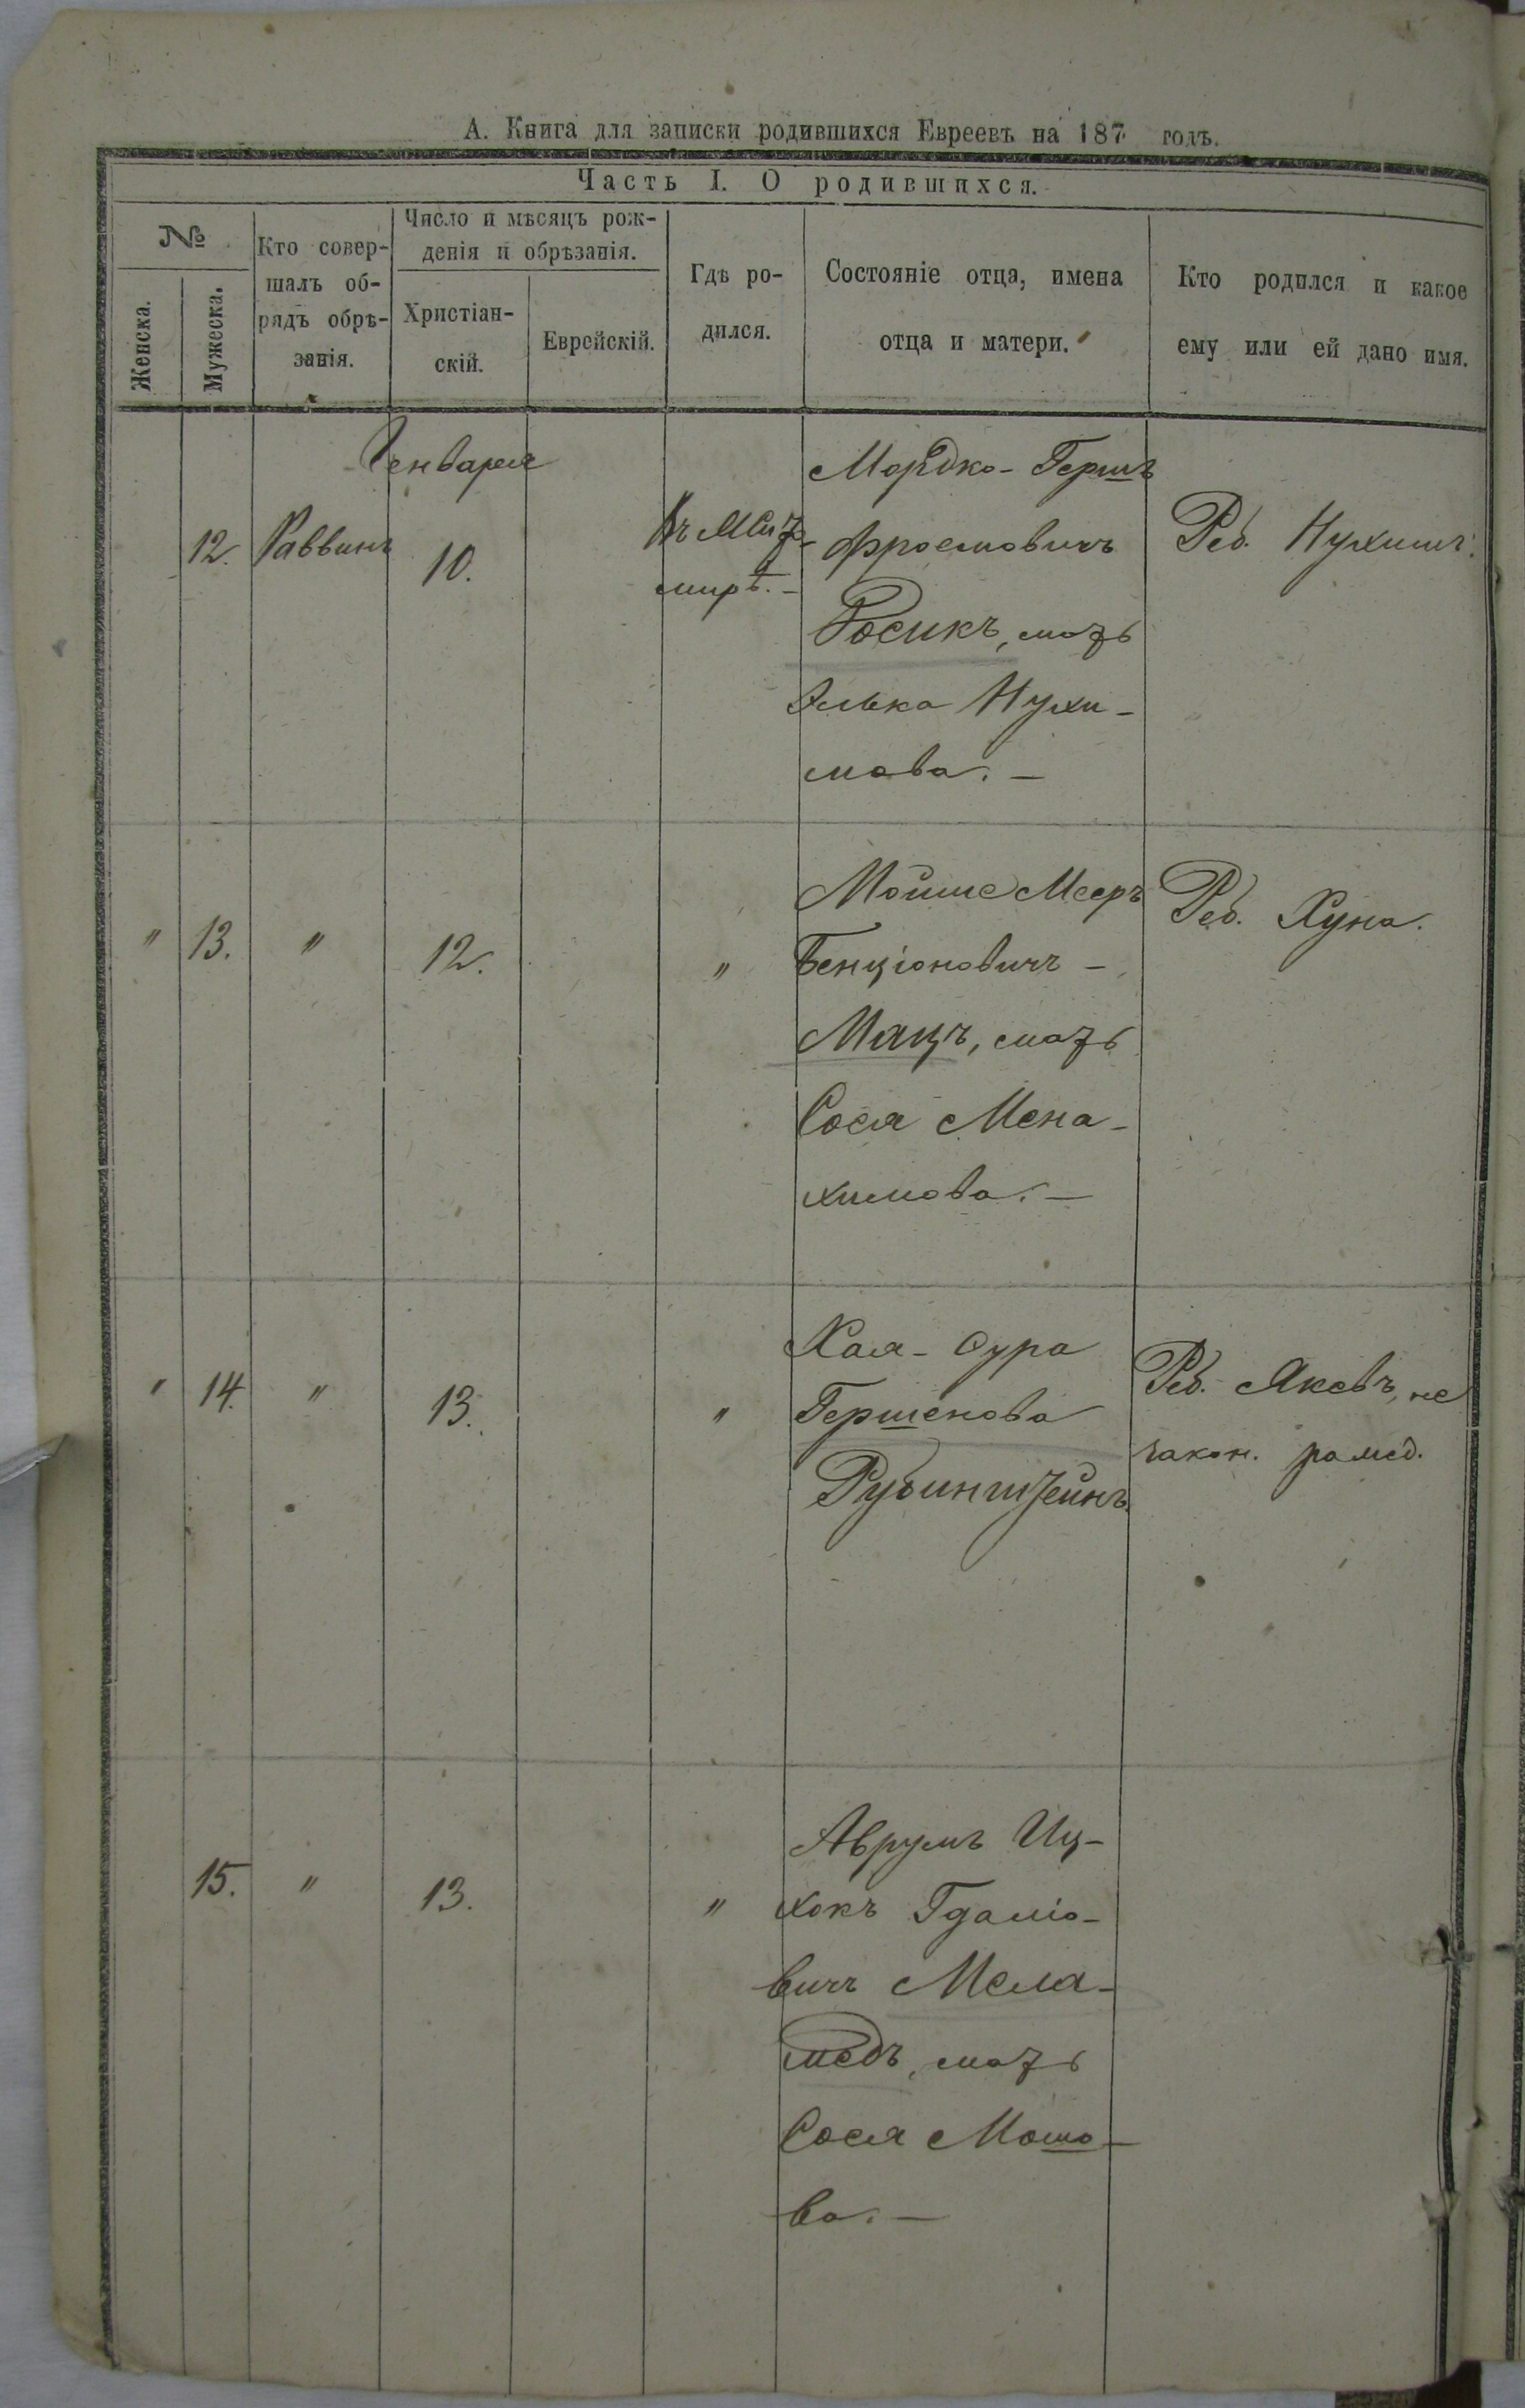 А. Книга для записки родившихся Евреевъ на 187 годъ.
Часть I. О родившихся.
№
Женска.
Мужеска.
Кто совер-
шалъ об-
рядъ обрѣ-
занія.
Число и мѣсяцъ рож-
денія и обрѣзанія.
Христіан-
скій.
Еврейскій.
Гдѣ ро-
дился.
Состояніе отца, имена
отца и матери.
Кто родился и какое
ему или ей дано имя.
Генваря
12. Раввинъ 10.
мирѣ. –
Мордко-Гершъ
Фроемовичъ
Росикъ, мать
Элька Нухи-
мова. –
Реб. Нухимъ.
" 13. " 12. "
Мойше Мееръ
Бенціоновичъ –
Мацъ, мать
Сося Мена-
химова. –
Реб. Хуна.
" 14. " 13. "
Хая-Сура
Гершенова
Рубинштейнъ.
Реб. Яковъ, не
закон. рожд.
15. " 13. "
Аврумъ Иц-
хокъ Гдаліо-
вичъ Мела-
медъ, мать
Сося Мошо-
ва. –